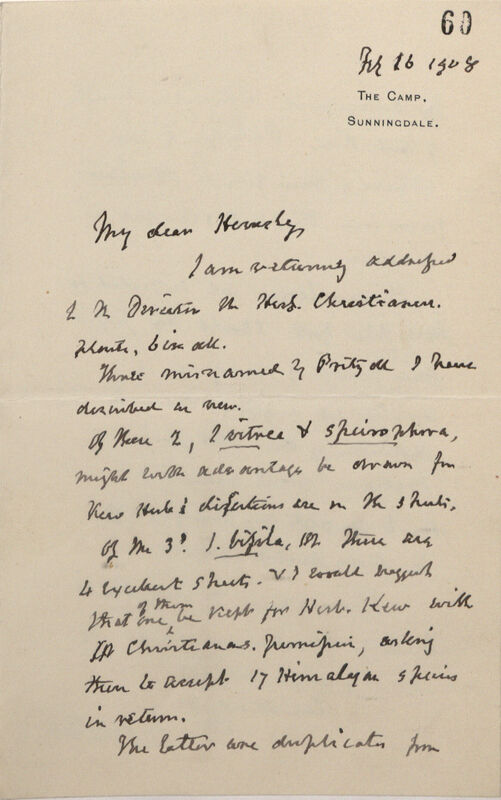 60
Feb 16 1908
THE CAMP,
SUNNINGDALE.
My dear Hemsley,
I am returning addressed
to the Director the Herb. Christianien.
plants, 6 in all.
Three misnamed by Pritzell I have
described as new.
Of these 2, I. vitrea & speirophora,
might with advantage be drawn for
Kew Herb: dissections are on the sheets.
Of the 3d. I. bifida, IHf there are
4 excellent sheets. & I would suggest
that one of them be kept for Herb. Kew with
Christiana's permission, asking
them to accept 17 Himalayan species
in return.
The latter are duplicates from